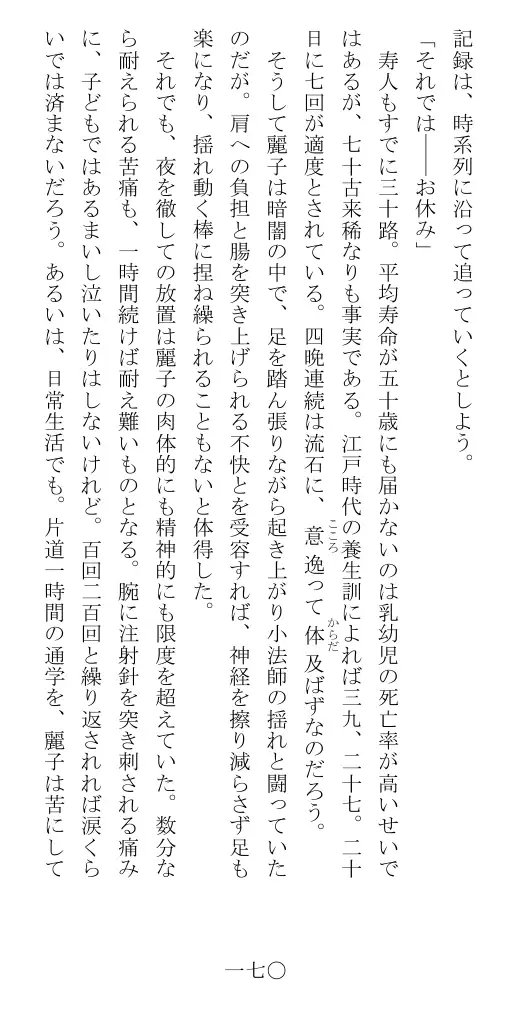 記録は、時系列に沿って追っていくとしよう。
「それでは――お休み」
　寿人もすでに三十路。平均寿命が五十歳にも届かないのは乳幼児の死亡率が高いせいで
はあるが、七十古来稀なりも事実である。江戸時代の養生訓によれば三九、二十七。二十
日に七回が適度とされている。四晩連続は流石に、意こころ逸って体からだ及ばずなのだろう。
　そうして麗子は暗闇の中で、足を踏ん張りながら起き上がり小法師の揺れと闘っていた
のだが。肩への負担と腸を突き上げられる不快とを受容すれば、神経を擦り減らさず足も
楽になり、揺れ動く棒に捏ね繰られることもないと体得した。
　それでも、夜を徹しての放置は麗子の肉体的にも精神的にも限度を超えていた。数分な
ら耐えられる苦痛も、一時間続けば耐え難いものとなる。腕に注射針を突き刺される痛み
に、子どもではあるまいし泣いたりはしないけれど。百回二百回と繰り返されれば涙くら
いでは済まないだろう。あるいは、日常生活でも。片道一時間の通学を、麗子は苦にして
一七〇